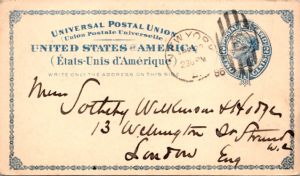 UNIVERSAL POSTAL UNION
Union Postale Universelle
UNITED STATES OF AMERICA
(États-Unis d'Amérique)
WRITE ONLY THE ADDRESS ON THIS SIDE
NEW YORK
Messrs
Sotheby Wilkinson & Hodge
13 Wellington St Strand
W.C
London
Eng